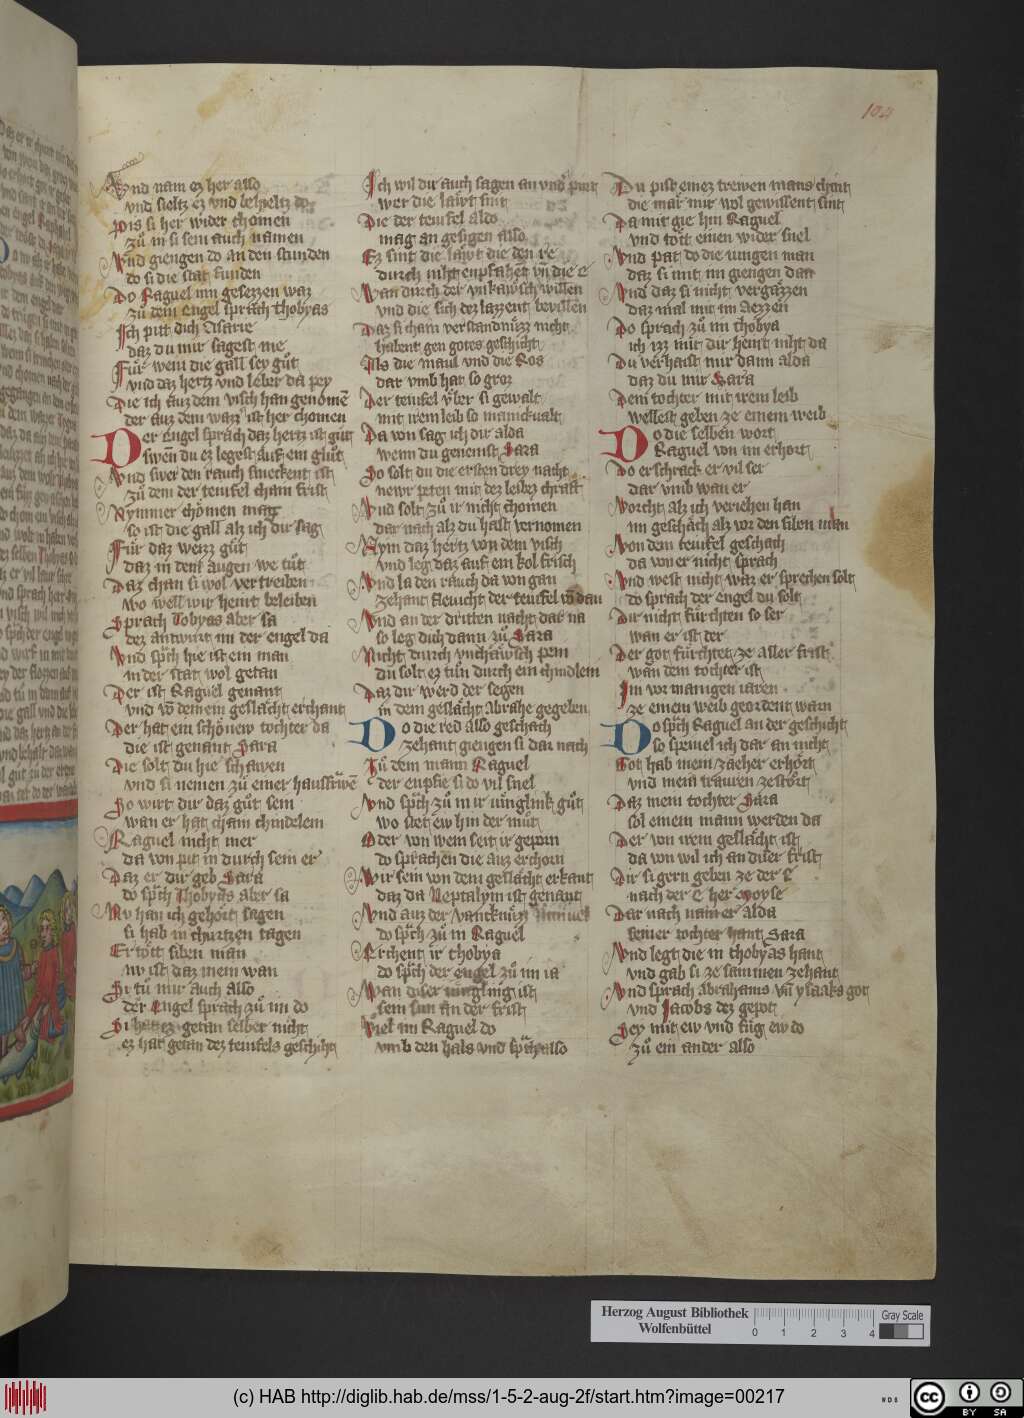 104
Vnd nam ez her also
vnd sieltz ez vnd behieltz do
Bis si her wider chomen
zů in si sein auch namen
Vnd giengen do an den stunden
do si die stat funden
Do Raguel inn gesezzen waz
zů dem Engel sprach thobyas
Ich pitt dich Asarie
daz du mir sagest me
Fůr wem die gall sey gůt
vnd daz hertz vnd leber da pey
Die ich auz dem visch han genomē
der auz dem wazz ist her chomen
Der engel sprach daz hertz ist gůt
swen du ez legest auf ein glůt
Vnd swer den rauch smeckent ist
zů dem der teufel cham frist
Nymmer chomen mag
so ist die gall alz ich dir sag
Fůr daz weizz gůt
daz in den augen we tůt
Daz chan si wol vertreiben
wo well wir heint beleiben
Sprach Tobyas aber sa
dez antwurt im der engel da
Vnd sp̄ch hie ist ein man
in der stat wol getan
Der ist Raguel genant
vnd vō deinem geslächt erchant
Der hat ein schönew tochter da
die ist genant Sara
Die solt du hie schawen
vnd si nemen zů einer hausfrwē
So wirt dir daz gůt sein
wan er hat cham chindelein
Raguel nicht mer
da von pit in durch sein er
Daz er dir geb Sara
do sp̄ch Thobyas aber sa
Nv han ich gehört sagen
si hab in churtzen tagen
Ertött siben man
nv ist daz mein wan
Si tů mir auch also
der Engel sprach zů im do
Si hat ez getan selber nicht
ez hat getan dez teufels geschicht
Ich wil dir auch sagen an vnd
wer die läwt sint
Die der teufel aldo
mag an gesigen also
Ez sint die läwt die den re
durch niht enpfahēt vn̄ die e
Wan durch der vnkawsch willen
vnd die sich dez lazzent bevillen
Daz si cham verstandnůzz nicht
habent gen gotes geschicht
Als die maul vnd die Ros
dar vmb hat so groz
Der teufel vber si gewalt
mit irem leib so manickualt
Da von sag ich dir alda
wenn du genemst Sara
So solt du die ersten drey nacht
newr peten mit dez leibez chraft
Vnd solt zů ir nicht chomen
dar nach alz du hast vernomen
Nym daz hertz von dem visch
vnd leg daz auf ein kol frisch
Vnd la den rauch da von gan
zehant fleucht der teufel vō dan
Vnd an der dritten nacht dar na
so leg dich dann zů Sara
Nicht durch vnchawsch pein
du solt ez tůn durch ein chindlein
Daz dir werd der segen
in dem geslächt Abrahe gegeben
Do die red also geschach
zehant giengen si dar nach
Zů dem mann Raguel
der enpfie si do vil snel
Vnd sp̄ch zů in ir iünglink gůt
wo stet ew hin der můt
Oder von wem seit ir geporn
do sprachen die auz erchorn
Wir sein von dem geslächt erkant
daz da Neptalym ist genant
Vnd auz der vanchnůzz
do sp̄ch zů in Raguel
Erchent ir thobya
do sp̄ch der engel zů im ia
Wan diser iüngling ist
sein sun an der frist
Viel im Raguel do
vmb den hals vnd sprach also
Du pist einez trewen mans chint
die mär mir wol gewissent sint
Da mit gie hin Raguel
vnd tött einen wider snel
Vnd pat do die iungen man
daz si mit im giengen dan
Vnd daz si nicht vergazzen
daz mal mit im Aezzen
Do sprach zů im thobya
ich izz mit dir heint niht da
Du verhaist mir dann alda
daz du mir Sara
Dein tochter mit irem leib
wellest geben ze einem weib
Do die selben wort
Raguel von im erhort
Do erschrack er vil ser
dar vmb wan er
Vorcht alz ich veriehen han
im geschäch alz vor den siben man
Von dem teufel geschach
da von er nicht sprach
Vnd west nicht waz er sprechen solt
do sprach der engel du solt
Dir nicht fürchten so ser
wan er ist der
Der got fürchtet ze aller frist
wan dein tochter ist
Im vor manigen iaren
ze einem weib geordent warn
Do sp̄ch Raguel an der geschicht
so speiuel ich dar an nicht
Got hab mein zäeher erhört
vnd mein trauren zestört
Daz mein tochter Sara
sol einem mann werden da
Der von irem geslächt ist
da von wil ich an diser frist
Dir si gern geben ze der E
nach der E her Moyse
Dar nach nam er alda
seiner tochter hant Sara
Vnd legt die in thobyas hant
vnd gab si ze sammen zehant
Vnd sprach Abrahams vn̄ ysaaks got
vnd Jacobs dez gepot
Sey mit ew vnd füg ew do
zů ein ander also
Herzog August Bibliothek
Wolfenbüttel
Gray Scale
0 1 2 3 4
(c) HAB http://diglib.hab.de/mss/1-5-2-aug-2f/start.htm?image=00217
WDB
cc BY SA